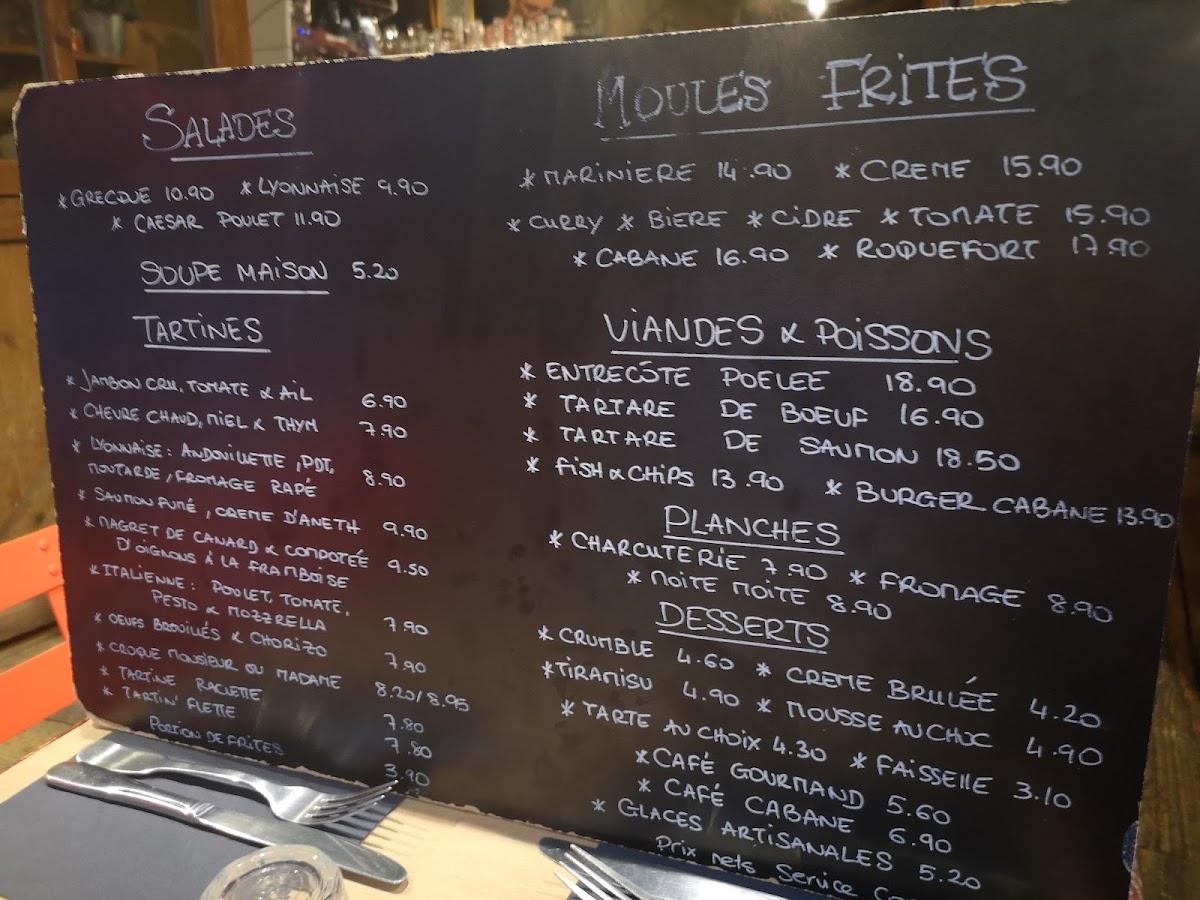 SALADES
* GRECQUE 10.90 * LYONNAISE 9.90
* CAESAR POULET 11.90
SOUPE MAISON 5.20
TARTINES
* JAMBON CRU, TOMATE & AIL 6.90
* CHEVRE CHAUD, MIEL & THYM 7.90
* LYONNAISE : ANDOUILLETTE, PDT,
MOUTARDE, FROMAGE RAPÉ 8.90
* SAUMON FUMÉ, CREME D'ANETH 9.90
* MAGRET DE CANARD & COMPOTÉE
D'OIGNONS À LA FRAMBOISE 9.50
* ITALIENNE : POULET, TOMATE,
PESTO & MOZZRELLA 7.90
* OEUFS BROUILLÉS & CHORIZO 7.90
* CROQUE MONSIEUR OU MADAME 8.20/8.95
* TARTINE RACLETTE 7.80
* TARTIN' FLETTE 7.80
PORTION DE FRITES 3.90
MOULES FRITES
* MARINIERE 14.90 * CREME 15.90
* CURRY * BIERE * CIDRE * TOMATE 15.90
* CABANE 16.90 * ROQUEFORT 17.90
VIANDES & POISSONS
* ENTRECÔTE POELEE 18.90
* TARTARE DE BOEUF 16.90
* TARTARE DE SAUMON 18.50
* FISH & CHIPS 13.90 * BURGER CABANE 13.90
PLANCHES
* CHARCUTERIE 7.90 * FROMAGE 8.90
* MOITE MOITE 8.90
DESSERTS
* CRUMBLE 4.60 * CREME BRULÉE 4.20
* TIRAMISU 4.90 * MOUSSE AU CHOC 4.90
* TARTE AU CHOIX 4.30 * FAISSELLE 3.10
* CAFÉ GOURMAND 5.60
* CAFÉ CABANE 6.90
* GLACES ARTISANALES 5.20
Prix nets Service